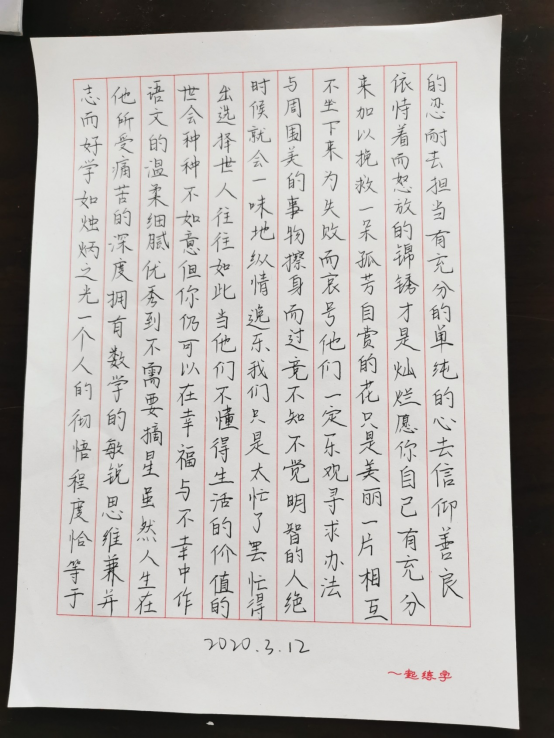 志而好学如烛炳之光一个人的彻悟程度恰等于
他所受痛苦的深度拥有数学的敏锐思维兼并
语文的温柔细腻优秀到不需要摘星虽然人生在
世会种种不如意但你仍可以在幸福与不幸中作
出选择世人往往如此当他们不懂得生活的价值的
时候就会一味地纵情逸乐我们只是太忙了罢忙得
与周围美的事物擦身而过竟不知不觉明智的人绝
不坐下来为失败而哀号他们一定乐观寻求办法
来加以挽救一朵孤芳自赏的花只是美丽一片相互
依恃着而怒放的锦锈才是灿烂愿你自己有充分
的忍耐去担当有充分的单纯的心去信仰善良
2020.3.12
一起练字